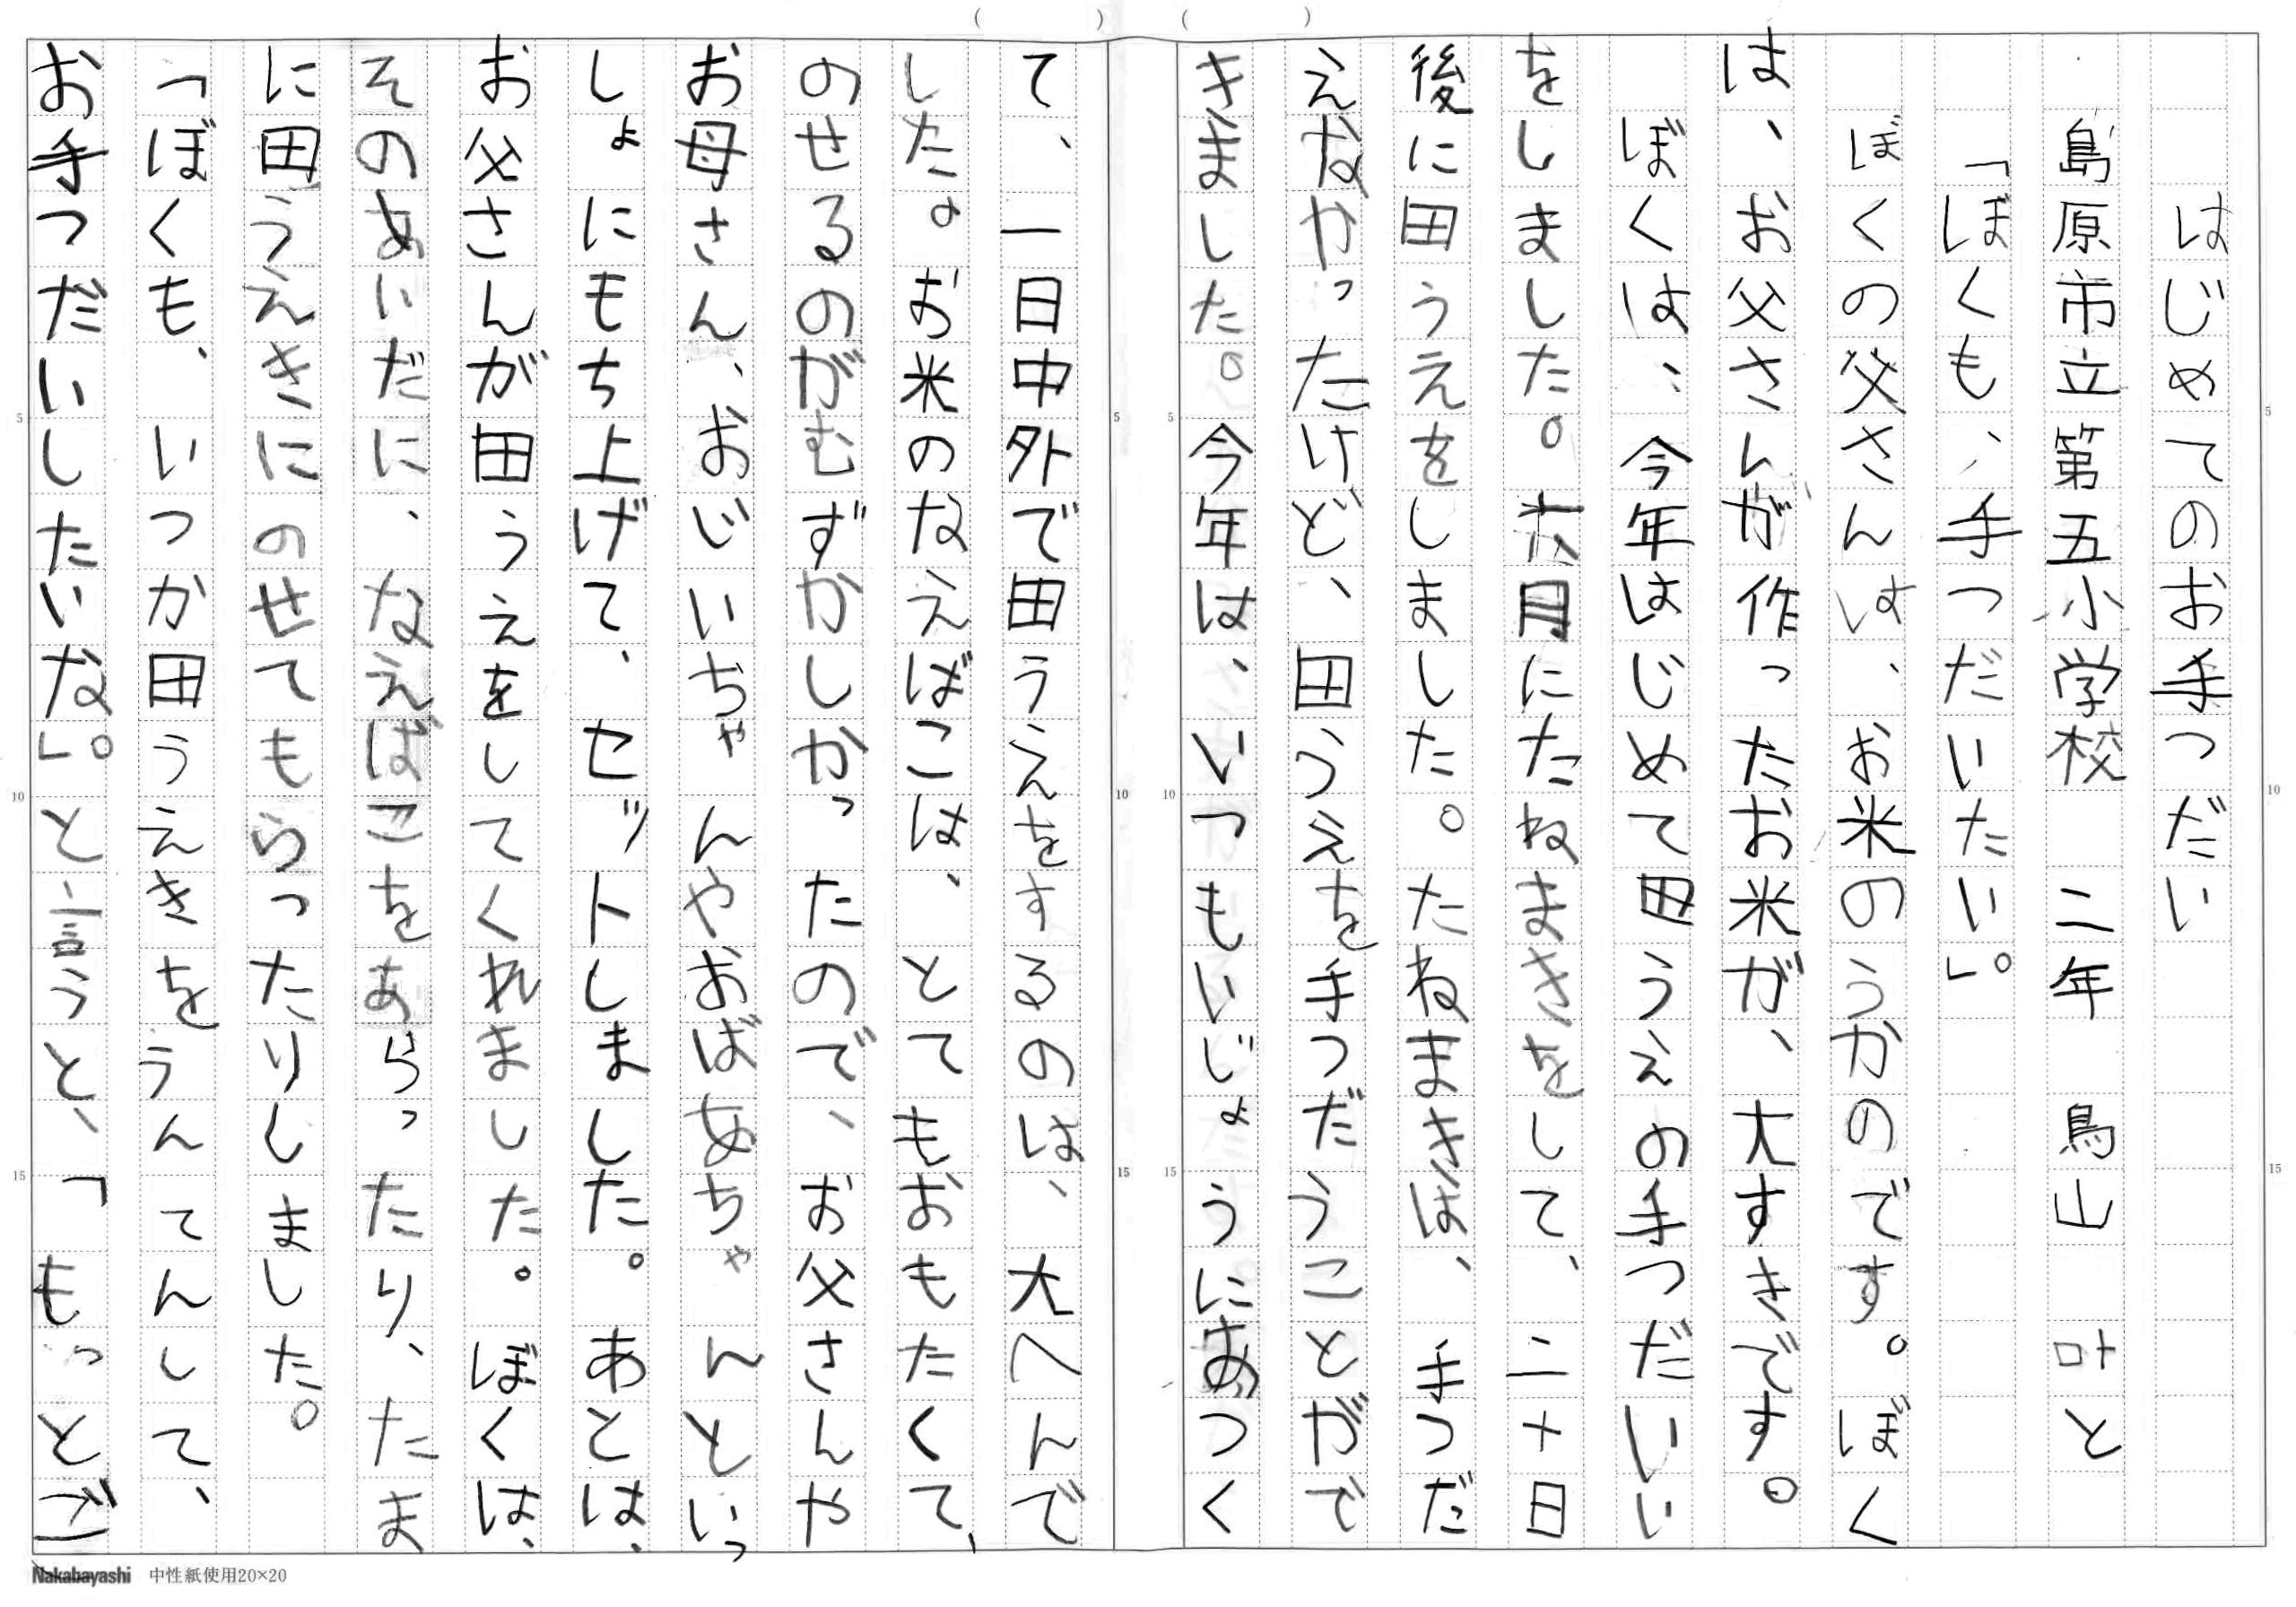 はじめてのお手つだい
島原市立第五小学校 二年 鳥山 叶と
「ぼくも、手つだいたい。」
ぼくの父さんは、お米のうかのです。ぼく
は、お父さんが作ったお米が、大すきです。
ぼくは、今年はじめて田うえの手つだいい
をしました。六月にたねまきをして、二十日
後に田うえをしました。たねまきは、手つだ
えなかったけど、田うえを手つだうことがで
きました。今年は、いつもいじょうにあつく
て、一日中外で田うえをするのは、大へんで
した。お米のなえばこは、とてもおもたくて、
のせるのがむずかしかったので、お父さんや
お母さん、おじいちゃんやおばあちゃんといっ
しょにもち上げて、セットしました。あとは、
お父さんが田うえをしてくれました。ぼくは、
そのあいだに、なえばこをあらったり、たま
に田うえきにのせてもらったりしました。
「ぼくも、いつか田うえきをうんてんして、
お手つだいしたいな。」と言うと、「もっとご
5
10
15
5
10
15
5
10
15
5
10
15
Nakabayashi 中性紙使用20×20